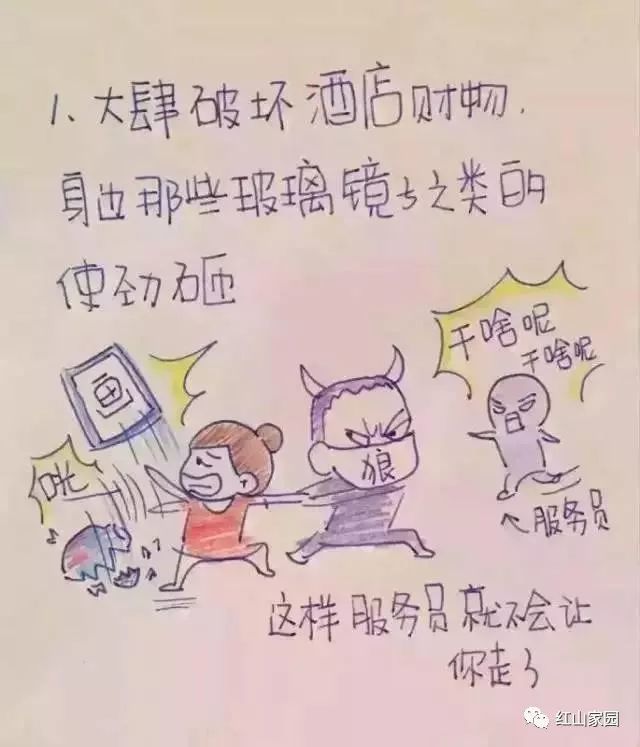 1、大肆破坏酒店财物.
身边那些玻璃镜子之类的
使劲砸
干啥呢
干啥呢
画
狼
咣
服务员
这样服务员就不会让
你走了
红山家园